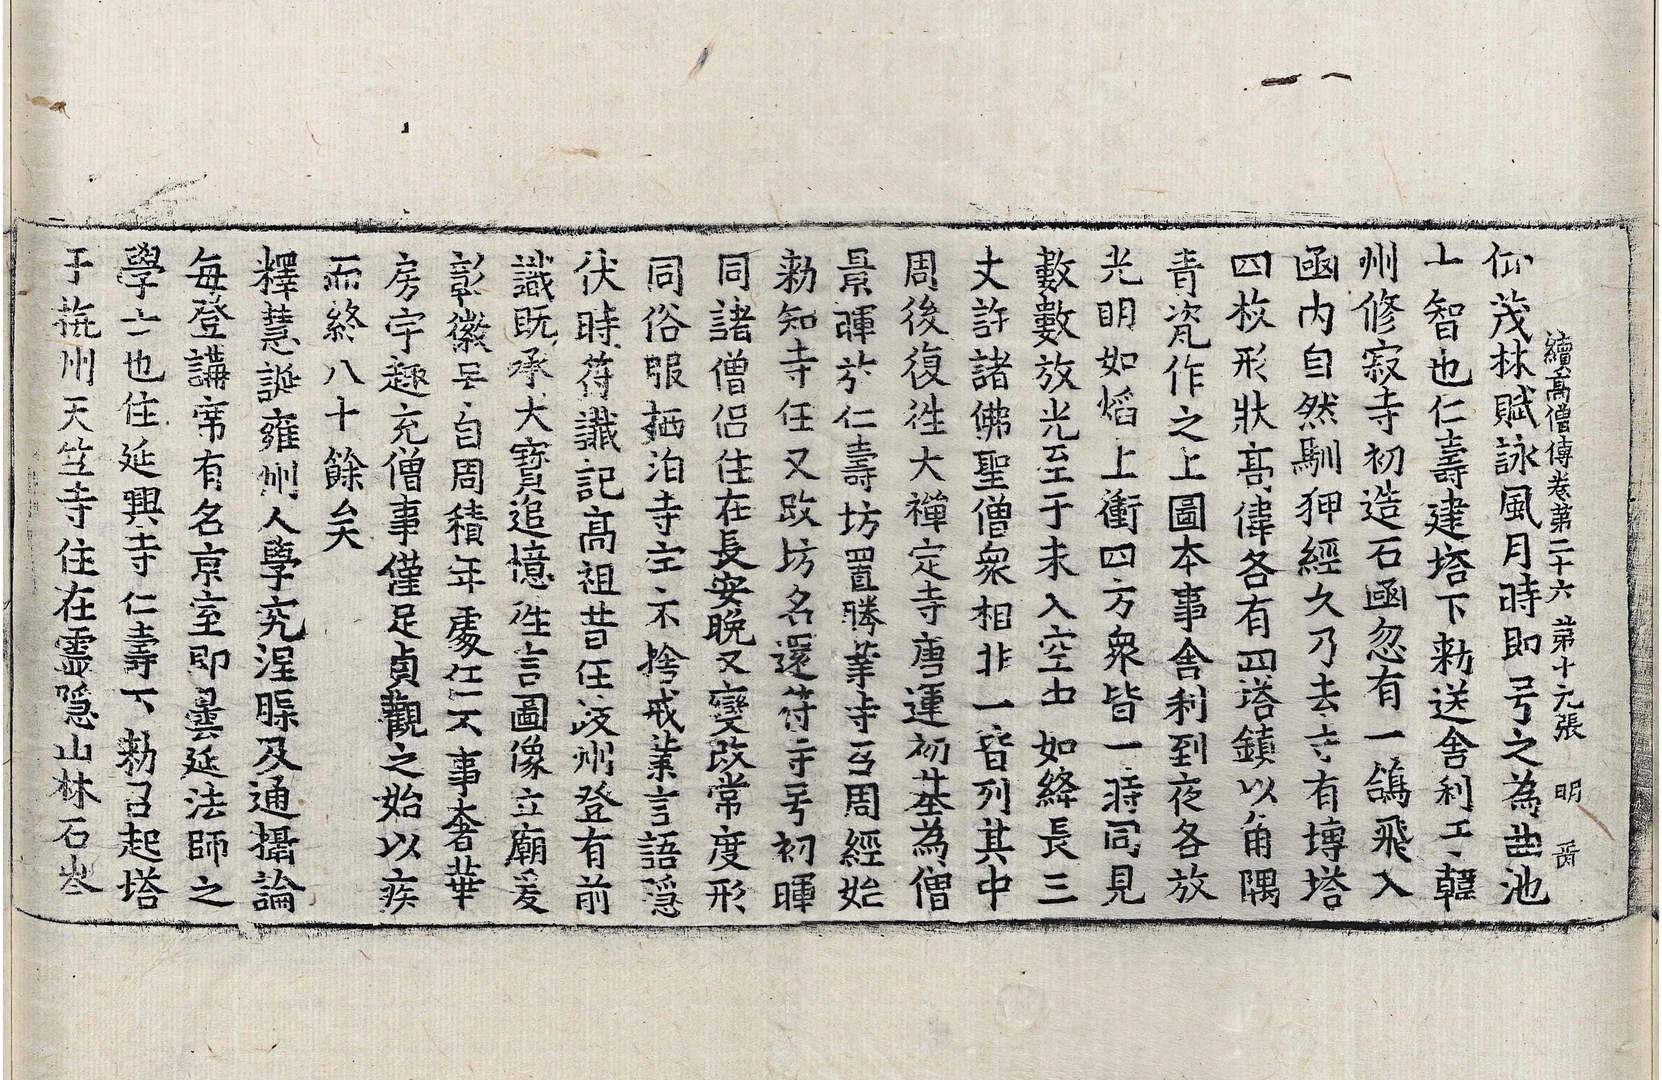 續高僧傳卷第二十六 第十九張 明
仰茂林賦詠風月時即号之為曲池
上智也仁壽建塔下勑送舍利于韓
州修寂寺初造石函忽有一鴿飛入
函內自然馴狎經久乃去寺有塼塔
四枚形狀高偉各有四塔鎮以角隅
青瓷作之上圖本事舍利到夜各放
光明如焰上衝四方衆皆一時同見
數數放光至于未入空中如絳長三
丈許諸佛聖僧衆相非一皆列其中
周後復徃大禪定寺唐運初基為僧
景暉於仁壽坊置勝業寺召周經始
勑知寺任又改坊名還符寺号初暉
同諸僧侶住在長安晚又變改常度形
同俗服栖泊寺宇不捨戒業言語隱
伏時符讖記高祖昔任岐州登有前
識既承大寶追憶徃言圖像立廟爰
彰徽号自周積年處任不事奢華
房宇趣充僧事僅足貞觀之始以疾
而終八十餘矣
釋慧誕雍州人學究涅槃及通攝論
每登講席有名京室即曇延法師之
學士也住延興寺仁壽下勑召起塔
于杭州天竺寺住在靈隱山林石岑